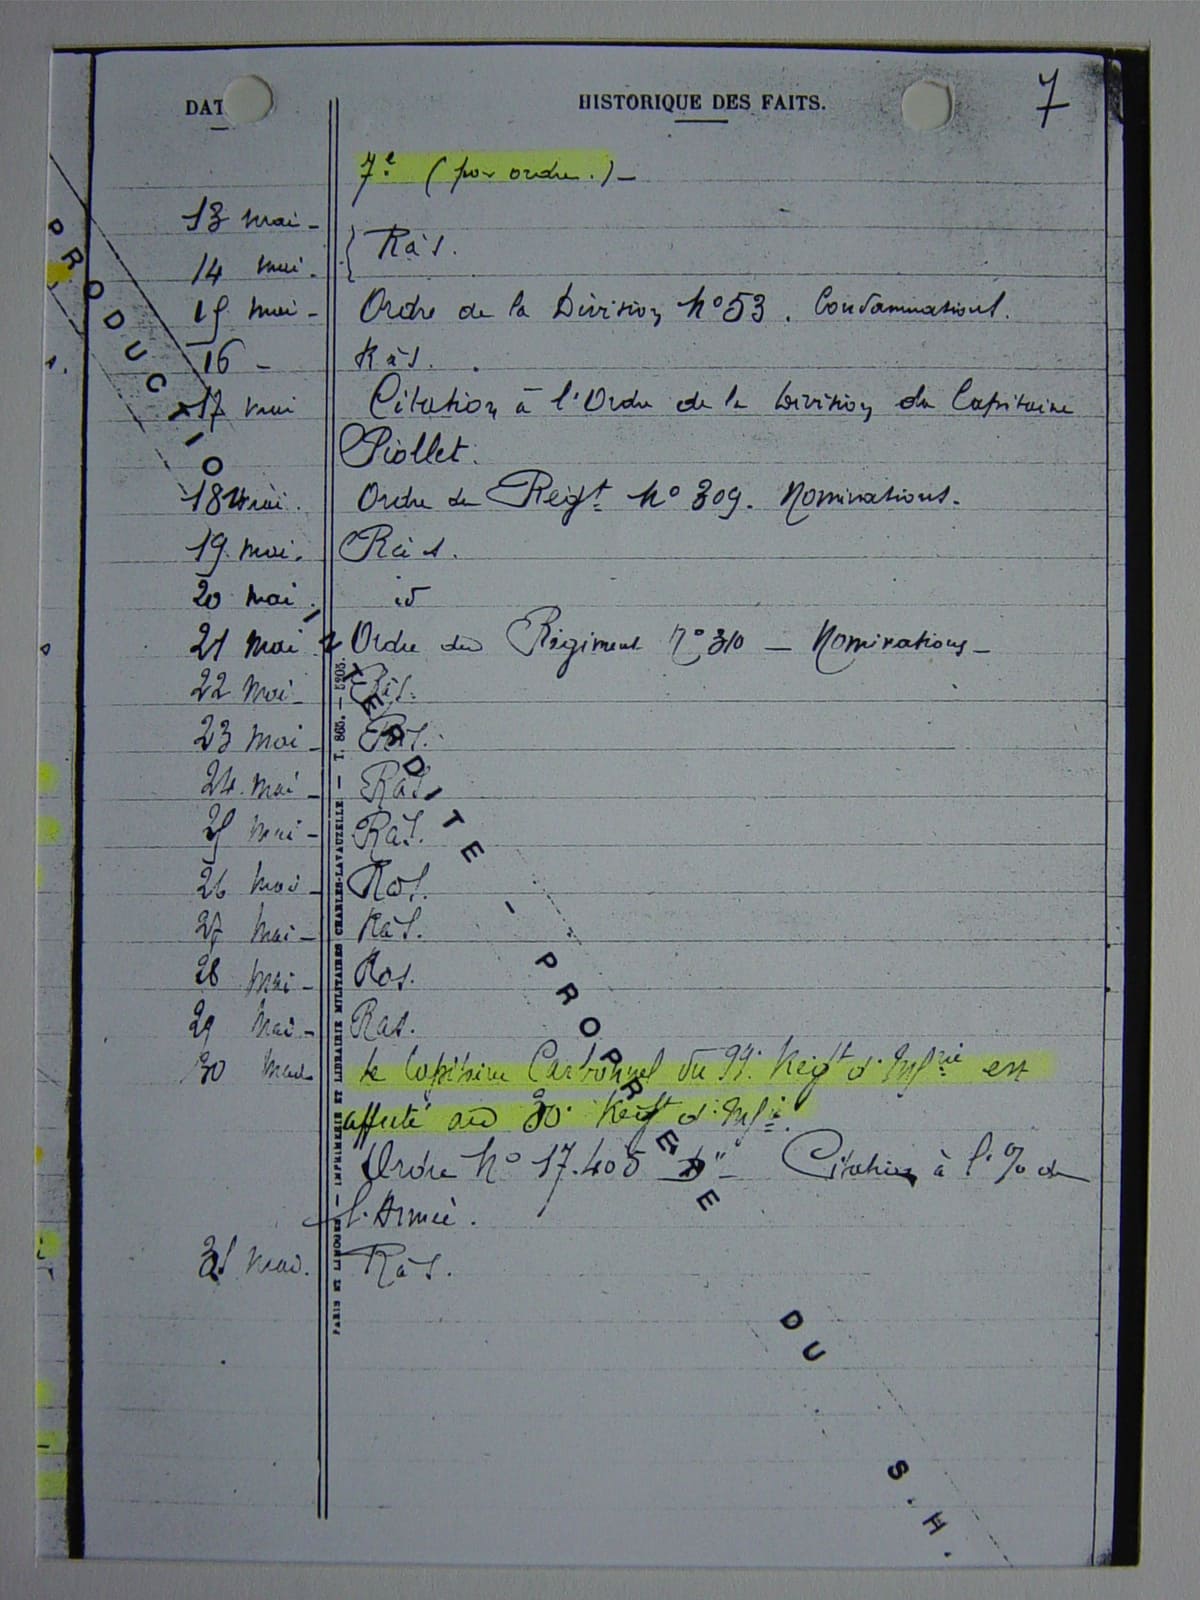 7
DAT HISTORIQUE DES FAITS.
7e (par ordre.) -
13 mai -
14 mai. } Ràs.
15 mai - Ordre de la Division No 53. Condamnations.
16 - Ràs.
17 mai Citation à l'Ordre de la Division du Capitaine
Piollet.
18 mai. Ordre du Regt No 309. Nominations.
19 mai. Ràs.
20 mai. id
21 mai Ordre du Régiment No 310 - Nominations -
22 mai - Ràs.
23 mai - Ràs.
24 mai - Ràs
25 mai - Ràs.
26 mai - Ras.
27 mai - Ràs.
28 mai - Ras.
29 mai - Ras.
30 mai Le Capitaine Carbonnel du 99e Regt d'Infrie est
affecté au 30e Regt d'Infie.
Ordre No 17.405 D" - Citation à l'% de
l'Armée.
31 mai. Ràs.
PARIS ET LIMOGES. — IMPRIMERIE ET LIBRAIRIE MILITAIRES CHARLES-LAVAUZELLE — T. 865. — 5205.
PRODUCTIO INTERDITE - PROPRIETE DU S.H.